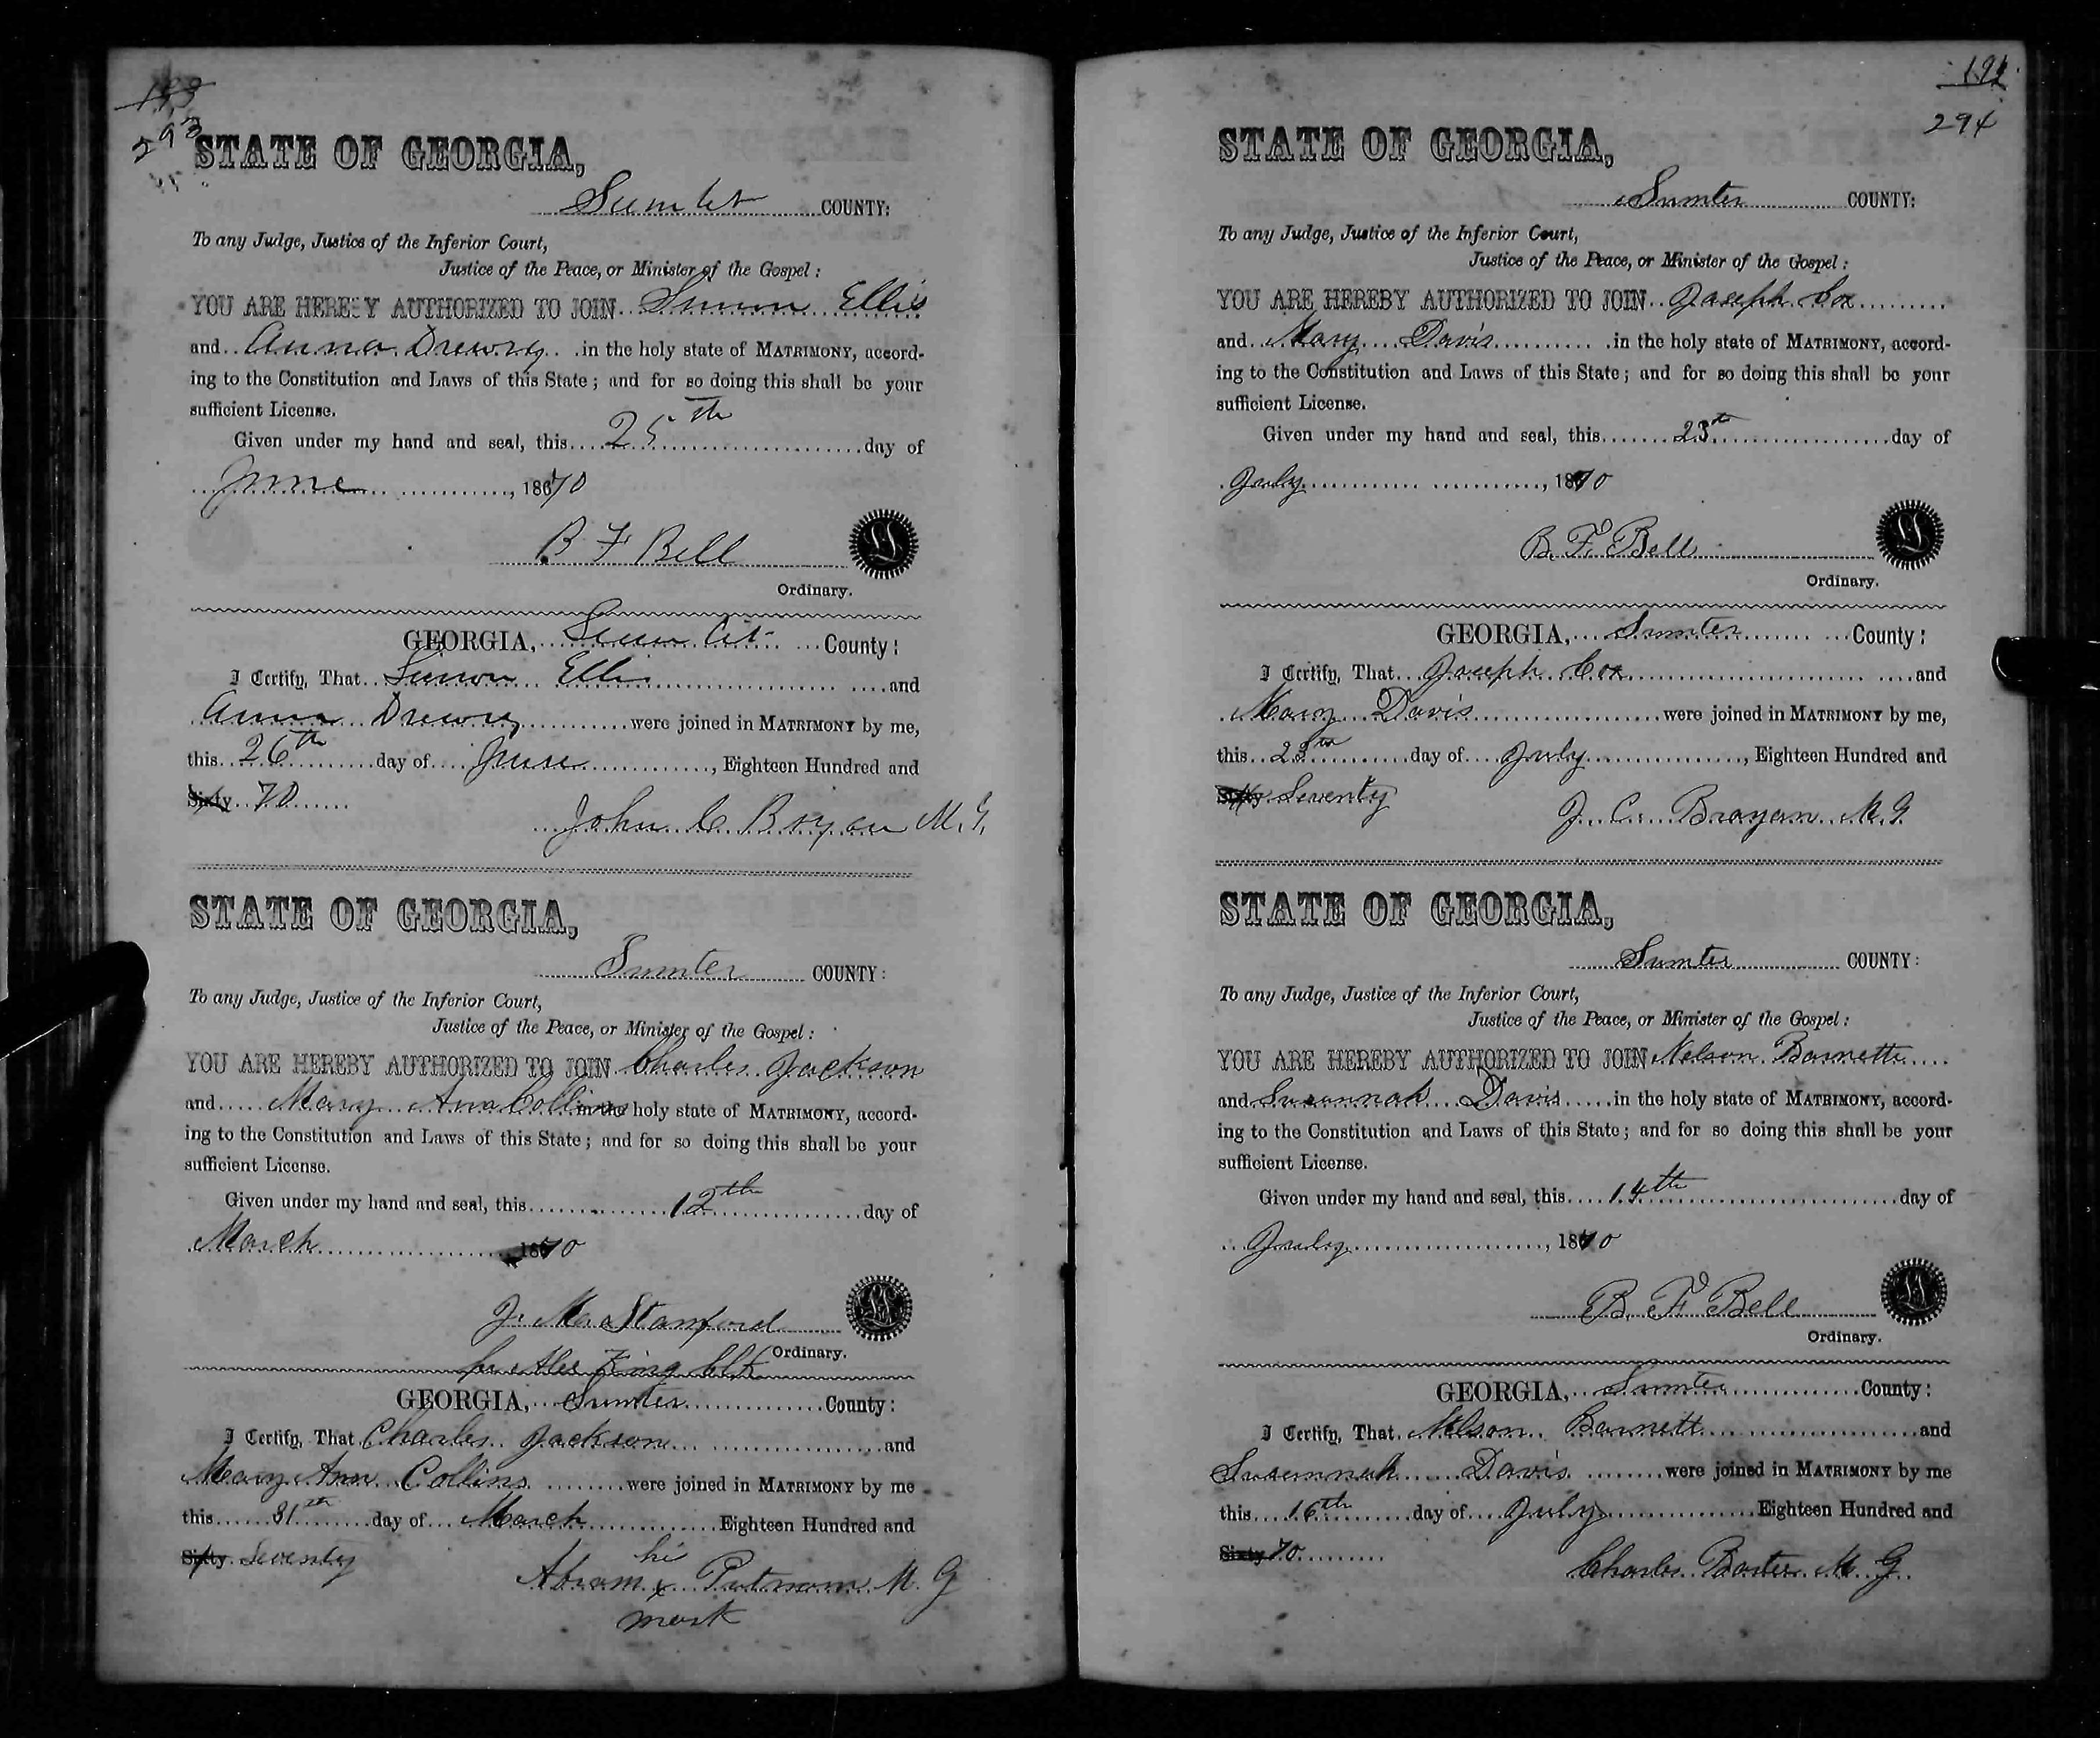 193
293
STATE OF GEORGIA,
Sumter COUNTY:
To any Judge, Justice of the Inferior Court,
Justice of the Peace, or Minister of the Gospel:
YOU ARE HEREBY AUTHORIZED TO JOIN Simon Ellis
and Anna Drewry in the holy state of MATRIMONY, accord-
ing to the Constitution and Laws of this State; and for so doing this shall be your
sufficient License.
Given under my hand and seal, this 25th day of
June, 1870
B F Bell
Ordinary.
GEORGIA, Sumter County:
I Certify, That Simon Ellis and
Anna Drewry were joined in MATRIMONY by me,
this 26th day of June, Eighteen Hundred and
Sixty 70
John C Bryan M.G.
STATE OF GEORGIA,
Sumter COUNTY:
To any Judge, Justice of the Inferior Court,
Justice of the Peace, or Minister of the Gospel:
YOU ARE HEREBY AUTHORIZED TO JOIN Charles Jackson
and Mary Ann Collins in the holy state of MATRIMONY, accord-
ing to the Constitution and Laws of this State; and for so doing this shall be your
sufficient License.
Given under my hand and seal, this 12th day of
March 1870
J. M. Stanford
Ordinary.
for Alec King Clk
GEORGIA, Sumter County:
I Certify, That Charles Jackson and
Mary Ann Collins were joined in MATRIMONY by me
this 31st day of March Eighteen Hundred and
Sixty Seventy
his
Abram x Putnam M. G
mark
194
294
STATE OF GEORGIA,
Sumter COUNTY:
To any Judge, Justice of the Inferior Court,
Justice of the Peace, or Minister of the Gospel:
YOU ARE HEREBY AUTHORIZED TO JOIN Joseph Cox
and Mary Davis in the holy state of MATRIMONY, accord-
ing to the Constitution and Laws of this State; and for so doing this shall be your
sufficient License.
Given under my hand and seal, this 23th day of
July, 1870
B. F. Bell
Ordinary.
GEORGIA, Sumter County:
I Certify, That Joseph Cox and
Mary Davis were joined in MATRIMONY by me,
this 23th day of July, Eighteen Hundred and
Sixty Seventy
J. C. Brayan M.G.
STATE OF GEORGIA,
Sumter COUNTY:
To any Judge, Justice of the Inferior Court,
Justice of the Peace, or Minister of the Gospel:
YOU ARE HEREBY AUTHORIZED TO JOIN Nelson Barnette
and Susannah Davis in the holy state of MATRIMONY, accord-
ing to the Constitution and Laws of this State; and for so doing this shall be your
sufficient License.
Given under my hand and seal, this 14th day of
July, 1870
B. F. Bell
Ordinary.
GEORGIA, Sumter County:
I Certify, That Nelson Barnett and
Susannah Davis were joined in MATRIMONY by me
this 16th day of July Eighteen Hundred and
Sixty 70
Charles Baxter M. G.